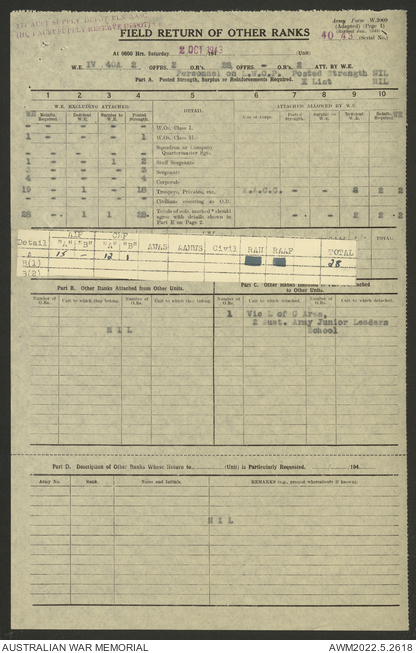 FIELD RETURN OF OTHER RANKS
Army Form W.3009
(Adapted) (Page 1)
40 43 (Serial No.)
At 0600 Hrs. Saturday 2 OCT 1943 (Unit)
W.E. IV 40A 2 OFFRS. 2 O.R's. 28 OFFRS. - O.R's. 2 ATT. BY W.E.
Personnel on L.W.O.P. Posted Strength NIL
Part A. Posted Strength, Surplus or Reinforcements Required. X List NIL
1 2 3 4 5 6 7 8 9 10
W.E. EXCLUDING ATTACHED DETAIL. ATTACHED ALLOWED BY W.E.
Reinfts. Required. Deficient W.E. Surplus to W.E. Posted Strength. Trade or Corps. Posted Strength. Surplus to W.E. Deficient W.E. Reinfts. Required.
- - - - W.Os. Class I.
1 - - 1 W.Os. Class II.
Squadron or Company Quartermaster Sgt.
1 - 1 2 Staff Sergeants
3 - - 3 Sergeants
4 - - 4 Corporals
19 1 - 18 Troopers, Privates, etc. A.A.C.C. - - 2 2
Civilians counting as O.R.
28 1 1 28 Totals of cols. marked * should agree with details shown in Part E on Page 2. - - 2 2
Detail AIF "A" "B" CMF "A" "B" AWAS AAMWS Civil RAN RAAF TOTAL
A 15 - 12 1 28
B(1)
B(2)
TOTAL.
Part B. Other Ranks Attached from Other Units.
to Other Units.
Number of O.Rs. Unit to which they belong. Number of O.Rs. Unit to which they belong. Number of O.Rs. Unit to which attached. Number of O.Rs. Unit to which attached.
NIL
1 Vic L of C Area,
2 Aust. Army Junior Leaders
School
Part D. Description of Other Ranks Whose Return to (Unit) is Particularly Requested. 194
Army No. Rank. Name and Initials. REMARKS (e.g., present whereabouts if known).
NIL
AUSTRALIAN WAR MEMORIAL
AWM2022.5.2618